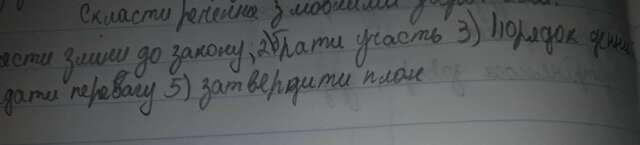 Скласти речення з мовними
ести зміни до закону, 2) брати участь 3) Порядок денни
дати перевагу 5) затвердити план